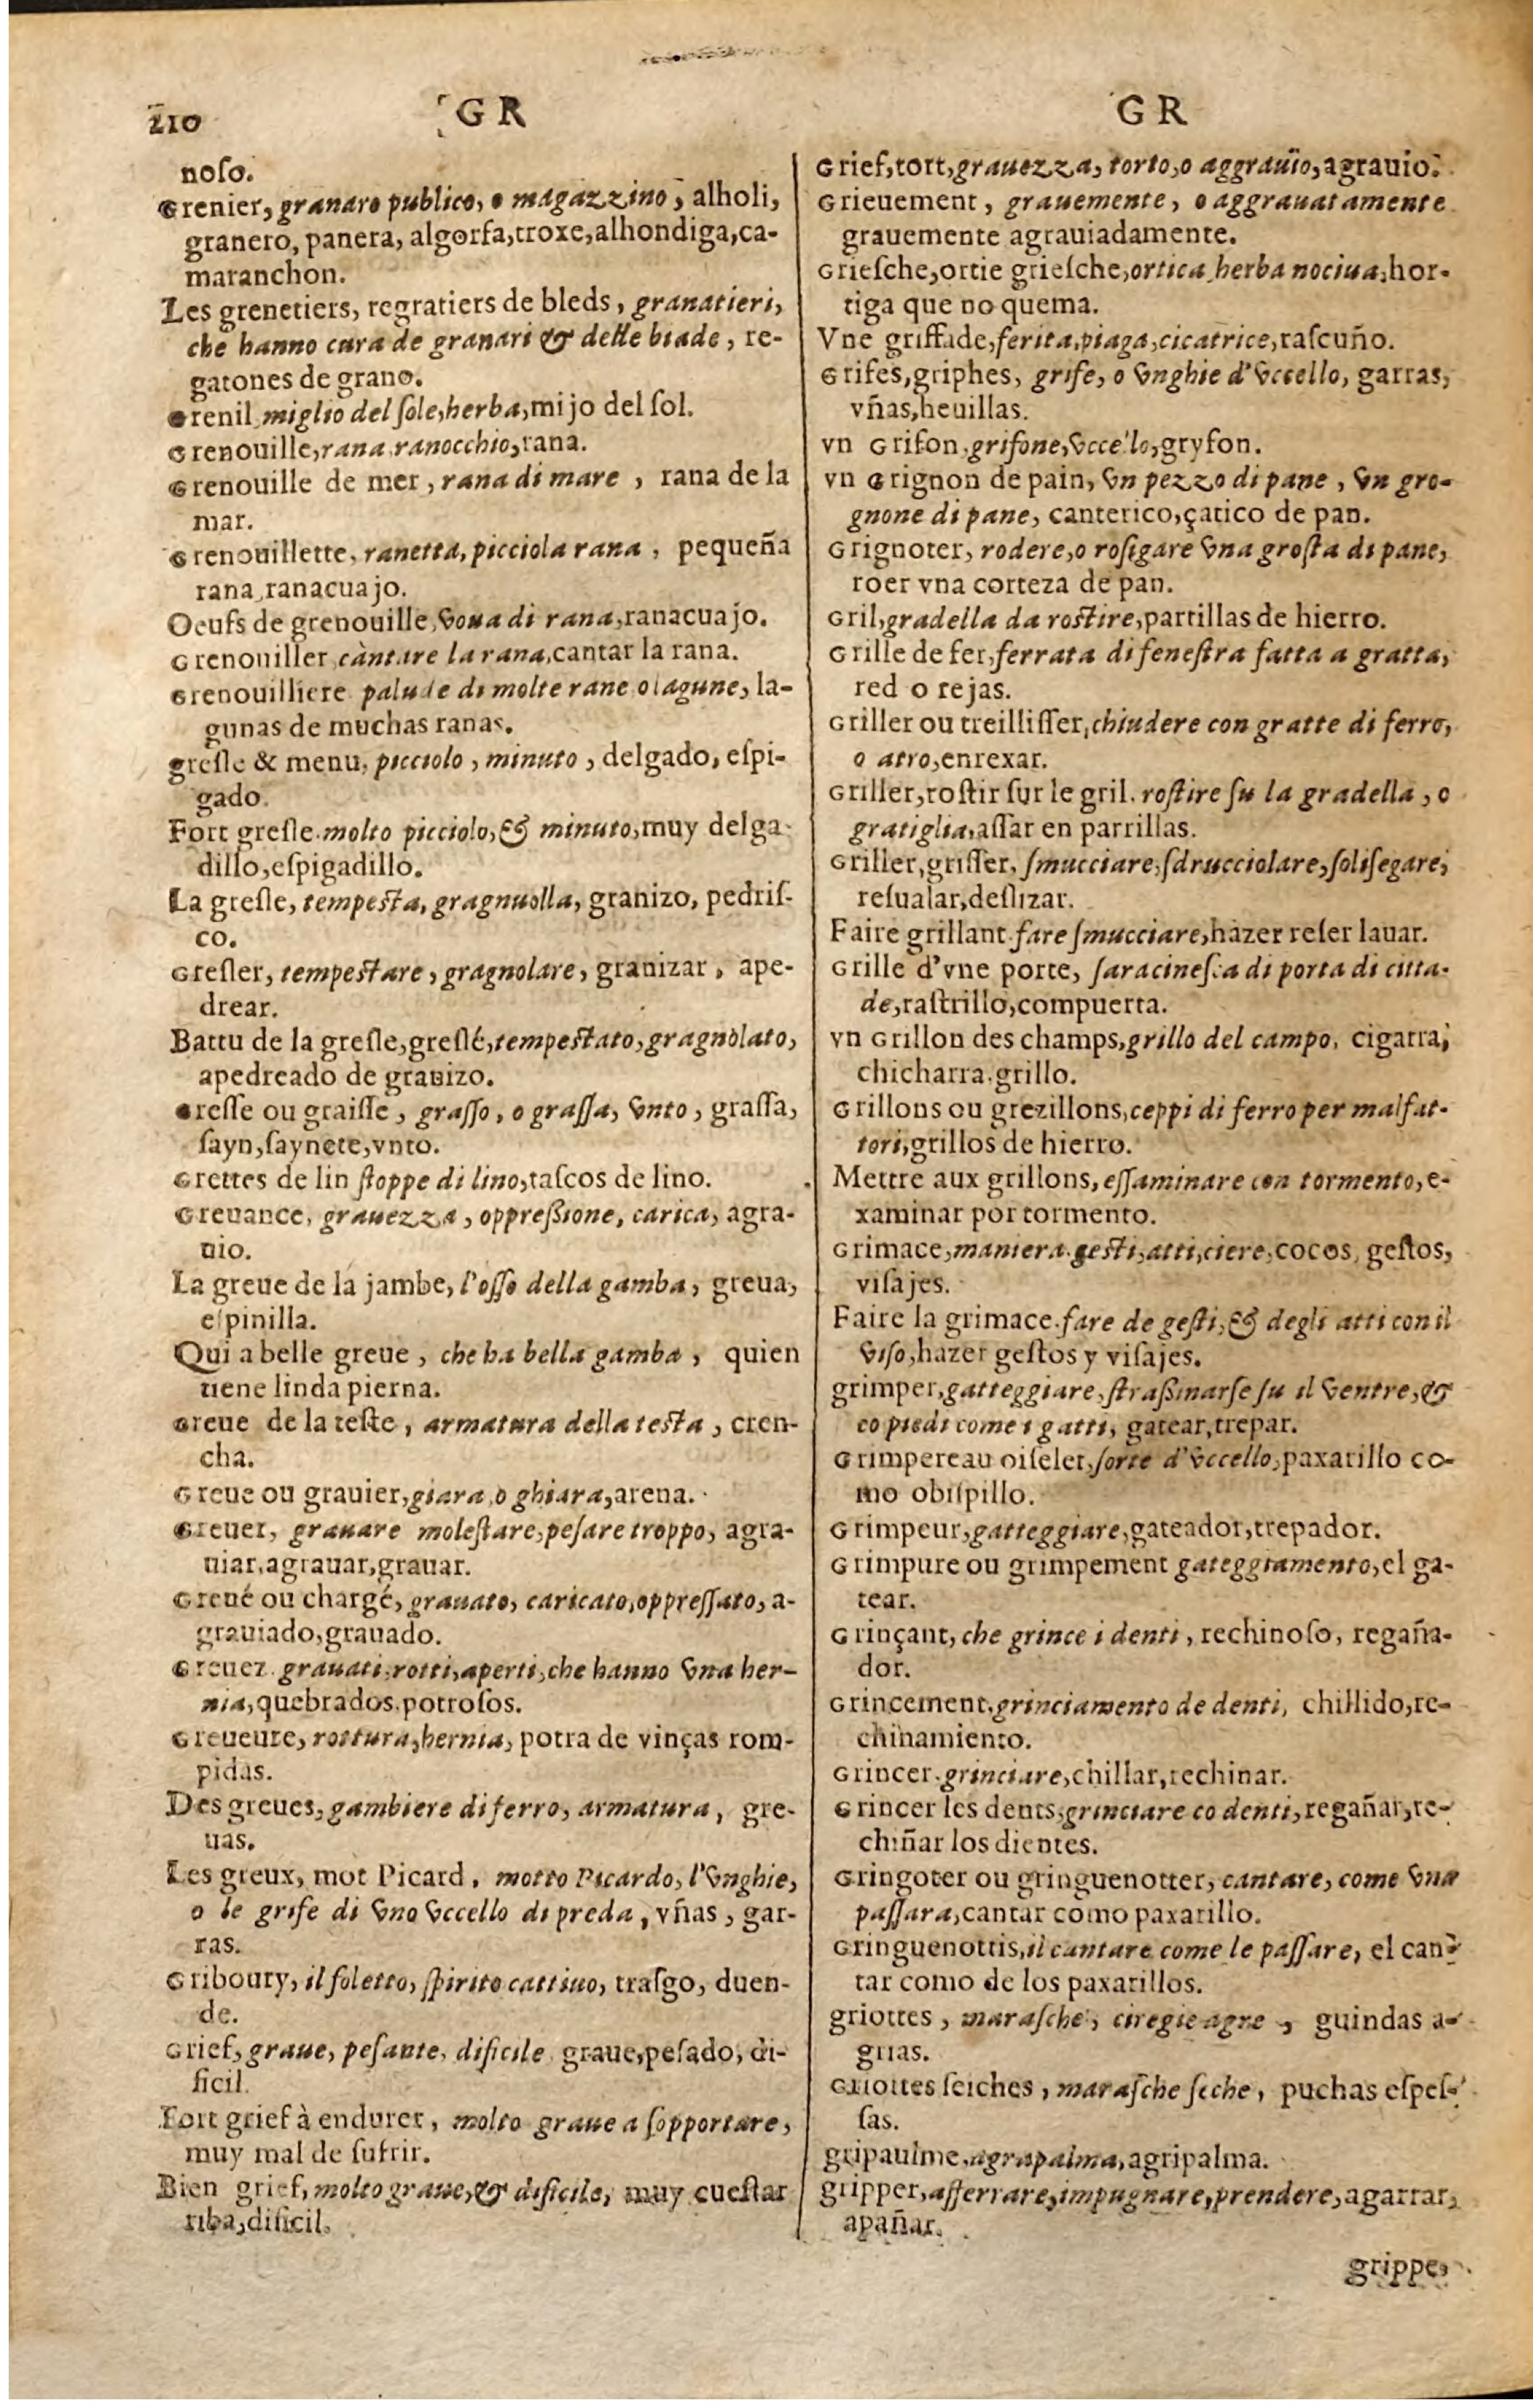 210
GR
GR
noſo.
Grenier, granaro publico, o magazzino, alholi,
granero, panera, algorfa, troxe, alhondiga, ca-
maranchon.
Les grenetiers, regratiers de bleds, granatieri,
che hanno cura de granari & delle biade, re-
gatones de grano.
Grenil, miglio del ſole, herba, mijo del ſol.
Grenouille, rana, ranocchio, rana.
Grenouille de mer, rana di mare, rana de la
mar.
Grenouillette, ranetta, picciola rana, pequeña
rana, ranacuajo.
Oeufs de grenouille, voua di rana, ranacuajo.
Grenouiller, càntare la rana, cantar la rana.
Grenouilliere palude di molte rane o lagune, la-
gunas de muchas ranas.
greſle & menu, picciolo, minuto, delgado, eſpi-
gado.
Fort greſle. molto picciolo, & minuto, muy delga-
dillo, eſpigadillo.
La greſle, tempeſta, gragnuolla, granizo, pedriſ-
co.
Greſler, tempeſtare, gragnolare, granizar, ape-
drear.
Battu de la greſle, greſlé, tempeſtato, gragnolato,
apedreado de granizo.
Greſſe ou graiſſe, graſſo, o graſſa, vnto, graſſa,
ſayn, ſaynete, vnto.
Grettes de lin ſtoppe di lino, taſcos de lino.
Greuance, grauezza, oppreßione, carica, agra-
uio.
La greue de la jambe, l'oſſo della gamba, greua,
eſpinilla.
Qui a belle greue, che ha bella gamba, quien
tiene linda pierna.
Greue de la teſte, armatura della teſta, cren-
cha.
Greue ou grauier, giara, o ghiara, arena.
Greuer, grauare moleſtare, peſare troppo, agra-
uiar, agrauar, grauar.
Greué ou chargé, grauato, caricato, oppreſſato, a-
grauiado, grauado.
Greuez. grauati, rotti, aperti, che hanno vna her-
nia, quebrados. potroſos.
Greueure, rottura, hernia, potra de vinças rom-
pidas.
Des greues, gambiere di ferro, armatura, gre-
uas.
Les greux, mot Picard, motto Picardo, l'vnghie,
o le grife di vno vccello di preda, vñas, gar-
ras.
Griboury, il foletto, ſpirito cattiuo, traſgo, duen-
de.
Grief, graue, peſante, dificile, graue, peſado, di-
ficil.
Fort grief à endurer, molto graue a ſopportare,
muy mal de ſufrir.
Bien grief, molto graue, & dificile, muy cueſtar
riba, dificil.
Grief, tort, grauezza, torto, o aggrauio, agrauio.
Grieuement, grauemente, o aggrauatamente
grauemente agrauiadamente.
Grieſche, ortie grieſche, ortica, herba nociua, hor-
tiga que no quema.
Vne griffade, ferita, piaga, cicatrice, raſcuño.
Grifes, griphes, grife, o vnghie d'vccello, garras,
vñas, heuillas.
vn Grifon, grifone, vccello, gryfon.
vn Grignon de pain, vn pezzo di pane, vn gro-
gnone di pane, canterico, çatico de pan.
Grignoter, rodere, o roſigare vna groſta di pane,
roer vna corteza de pan.
Gril, gradella da roſtire, partillas de hierro.
Grille de fer, ferrata di feneſtra fatta a gratta,
red o rejas.
Griller ou treilliſſer, chiudere con gratte di ferro,
o atro, enrexar.
Griller, roſtir ſur le gril. roſtire ſu la gradella, o
gratiglia, aſſar en parrillas.
Griller, griſſer, ſmucciare, ſdrucciolare, ſoliſegare,
reſualar, deſlizar.
Faire grillant. fare ſmucciare, hazer reſer lauar.
Grille d'vne porte, ſaracineſca di porta di citta-
de, raſtrillo, compuerta.
vn Grillon des champs, grillo del campo, cigarra,
chicharra, grillo.
Grillons ou grezillons, ceppi di ferro per malfat-
tori, grillos de hierro.
Mettre aux grillons, eſſaminare con tormento, e-
xaminar por tormento.
Grimace, maniera. geſti, atti, ciere, cocos, geſtos,
viſajes.
Faire la grimace. fare de geſti, & degli atti con il
viſo, hazer geſtos y viſajes.
grimper, gatteggiare, ſtraßinarſe ſu il ventre, &
co piedi come i gatti, gatear, trepar.
Grimpereau oiſelet, ſorte d'vccello, paxarillo co-
mo obiſpillo.
Grimpeur, gatteggiare, gateador, trepador.
Grimpure ou grimpement gateggiamento, el ga-
tear.
Grinçant, che grince i denti, rechinoſo, regaña-
dor.
Grincement, grinciamento de denti, chillido, re-
chinamiento.
Grincer. grinciare, chillar, rechinar.
Grincer les dents, grinciare co denti, regañar, re-
chiñar los dientes.
Gringoter ou gringuenotter, cantare, come vna
paſſara, cantar como paxarillo.
Gringuenottis, il cantare come le paſſare, el can-
tar como de los paxarillos.
griottes, maraſche, ciregie agre, guindas a-
grias.
Griottes ſeiches, maraſche ſeche, puchas eſpeſ-
ſas.
gripaulme, agrapalma, agripalma.
gripper, afferrare, impugnare, prendere, agarrar,
apañar.
grippe,